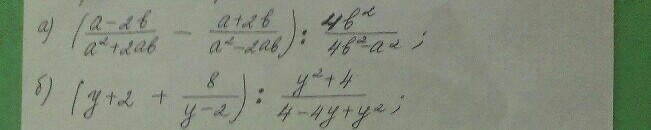 а) (a-2b/a²+2ab - a+2b/a²-2ab) : 4b²/4b²-a² ;
б) (y+2 + 8/y-2) : y²+4/4-4y+y² ;